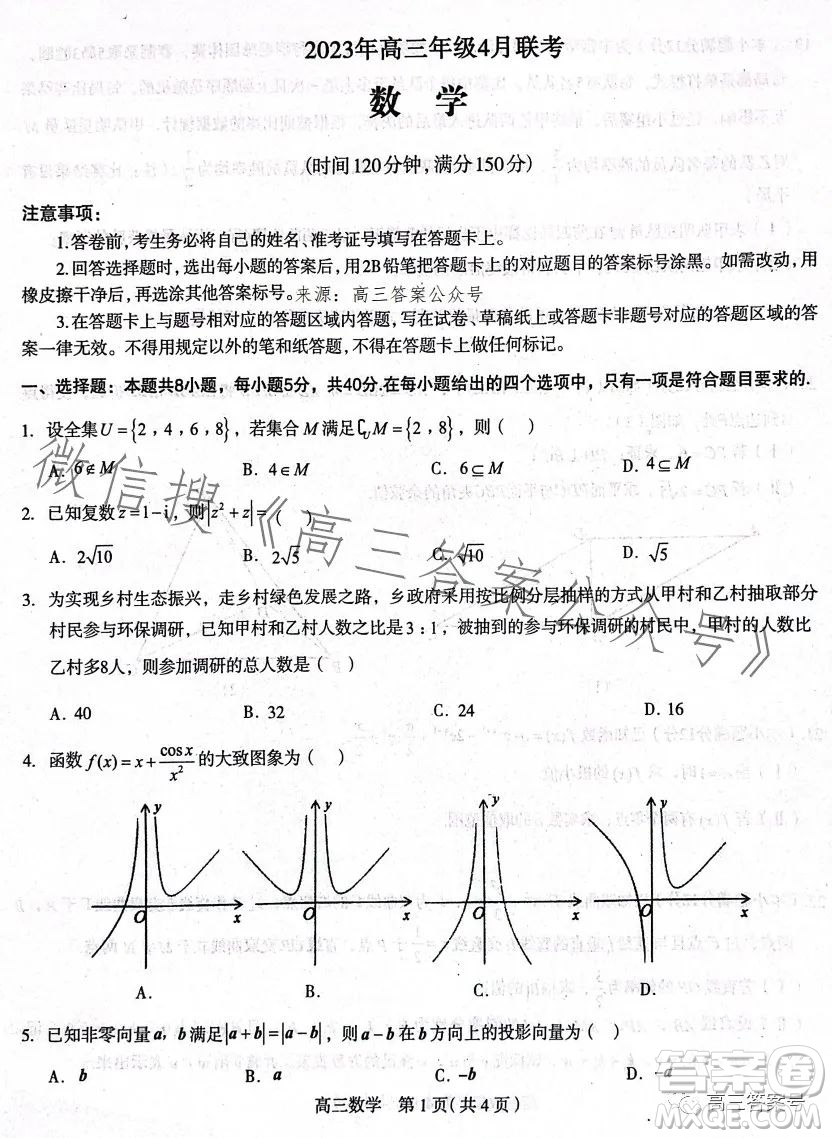 2023年高三年级4月联考
数 学
(时间120分钟,满分150分)
注意事项：
1.答卷前,考生务必将自己的姓名、准考证号填写在答题卡上。
2.回答选择题时,选出每小题的答案后,用2B铅笔把答题卡上的对应题目的答案标号涂黑。如需改动,用
橡皮擦干净后,再选涂其他答案标号。来源：高三答案公众号
3.在答题卡上与题号相对应的答题区域内答题,写在试卷、草稿纸上或答题卡非题号对应的答题区域的答
案一律无效。不得用规定以外的笔和纸答题,不得在答题卡上做任何标记。
一、选择题：本题共8小题，每小题5分，共40分.在每小题给出的四个选项中，只有一项是符合题目要求的.
1. 设全集U={2,4,6,8}，若集合M满足∁UM={2,8}，则（ ）
A. 6∉M B. 4∈M C. 6⊆M D. 4⊆M
2. 已知复数z=1-i，则|z²+z|=（ ）
A. 2√10 B. 2√5 C. √10 D. √5
3. 为实现乡村生态振兴，走乡村绿色发展之路，乡政府采用按比例分层抽样的方式从甲村和乙村抽取部分
村民参与环保调研，已知甲村和乙村人数之比是3：1，被抽到的参与环保调研的村民中，甲村的人数比
乙村多8人，则参加调研的总人数是（ ）
A. 40 B. 32 C. 24 D. 16
4. 函数f(x)=x+cosx/x²的大致图象为（ ）
y y y y
O x O x O x O x
A. B. C. D.
5. 已知非零向量a，b满足|a+b|=|a-b|，则a-b在b方向上的投影向量为（ ）
A. b B. a C. -b D. -a
高三数学 第1页(共4页)
微信搜《高三答案公众号》
高三答案号